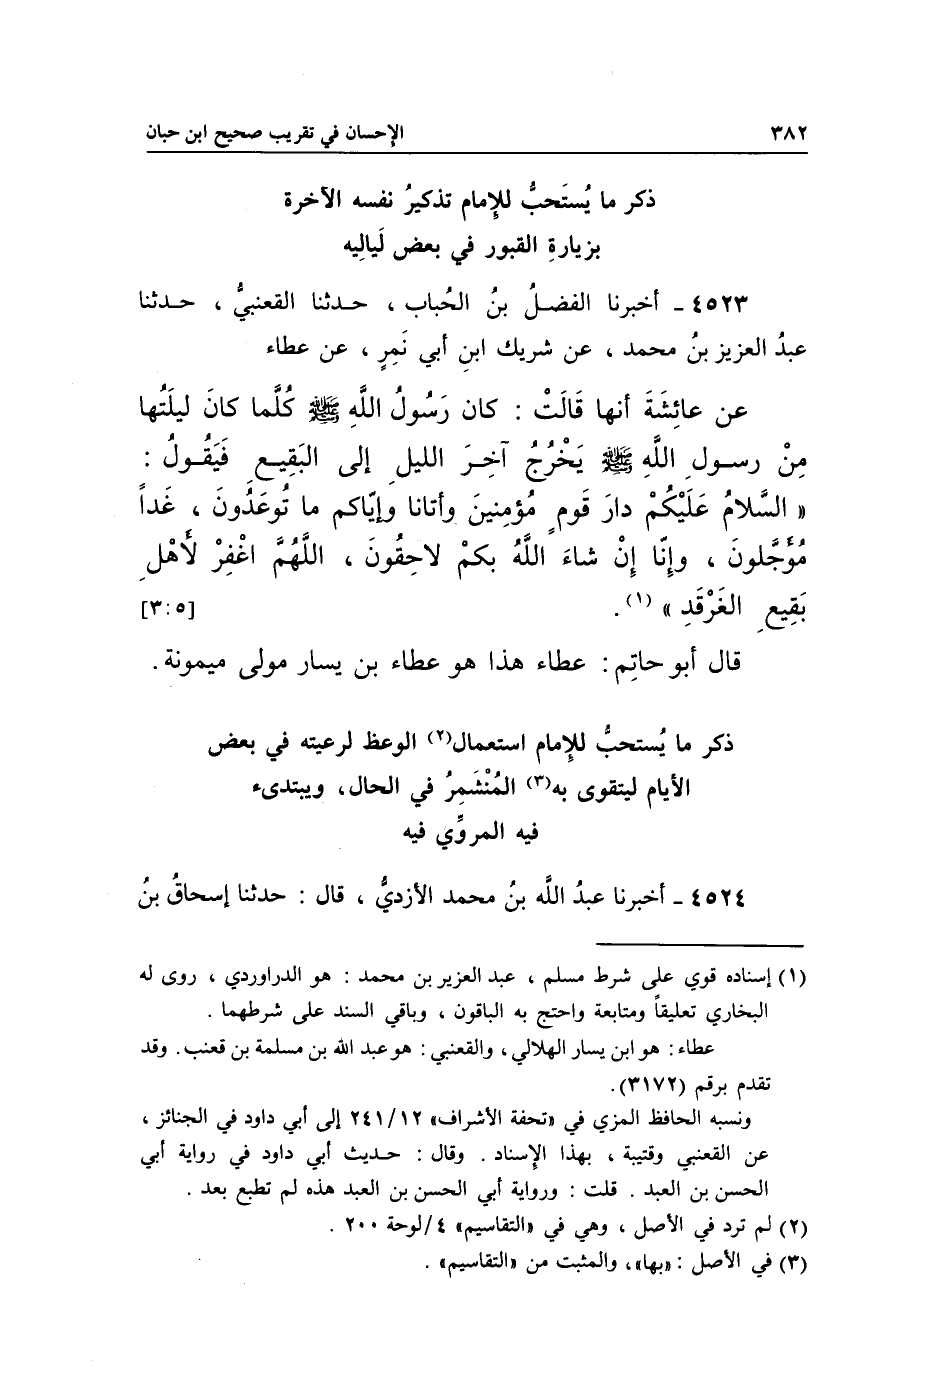 ٣٨٢ الإحسان في تقريب صحيح ابن حبان
ذكر ما يُستَحبُّ للإِمام تذكيرُ نفسه الآخرة
بزيارةِ القبور في بعض لَيالِيه
٤٥٢٣ ـ أخبرنا الفضـلُ بنُ الحُباب ، حـدثنا القعنبيُّ ، حـدثنا
عبدُ العزيز بنُ محمد ، عن شريك ابنِ أبي نَمِرٍ ، عن عطاء
عن عائِشَةَ أنها قَالَتْ : كان رَسُولُ اللَّهِ ﷺ كُلَّما كانَ ليلَتُها
مِنْ رسـولِ اللَّهِ ﷺ يَخْرُجُ آخِـرَ الليلِ إلى البَقِيـعِ فَيَقُـولُ :
« السَّلامُ عَلَيْكُمْ دارَ قَومٍ مُؤمِنينَ وأتانا وإيّاكم ما تُوعَدُونَ ، غَداً
مُؤَجَّلونَ ، وإنّا إنْ شاءَ اللَّهُ بكمْ لاحِقُونَ ، اللَّهُمَّ اغْفِرْ لأَهْلِ
بَقِيعِ الغَرْقَدِ » (١) . [٣:٥]
قال أبو حاتِم : عطاء هذا هو عطاء بن يسار مولى ميمونة .
ذكر ما يُستحبُّ للإِمام استعمال(٢) الوعظ لرعيته في بعض
الأيام ليتقوى به(٣) المُنْشَمِرُ في الحال، ويبتدىء
فيه المروِّي فيه
٤٥٢٤ ـ أخبرنا عبدُ اللَّه بنُ محمد الأزديُّ ، قال : حدثنا إسحاقُ بنُ
(١) إسناده قوي على شرط مسلم ، عبد العزيز بن محمد : هو الدراوردي ، روى له
البخاري تعليقاً ومتابعة واحتج به الباقون ، وباقي السند على شرطهما .
عطاء : هو ابن يسار الهلالي ، والقعنبي : هو عبد الله بن مسلمة بن قعنب . وقد
تقدم برقم (٣١٧٢).
ونسبه الحافظ المزي في «تحفة الأشراف» ٢٤١/١٢ إلى أبي داود في الجنائز ،
عن القعنبي وقتيبة ، بهذا الإِسناد . وقال : حـديث أبي داود في رواية أبي
الحسن بن العبد . قلت : ورواية أبي الحسن بن العبد هذه لم تطبع بعد .
(٢) لم ترد في الأصل ، وهي في «التقاسيم» ٤/لوحة ٢٠٠ .
(٣) في الأصل : «بها»، والمثبت من «التقاسيم» .